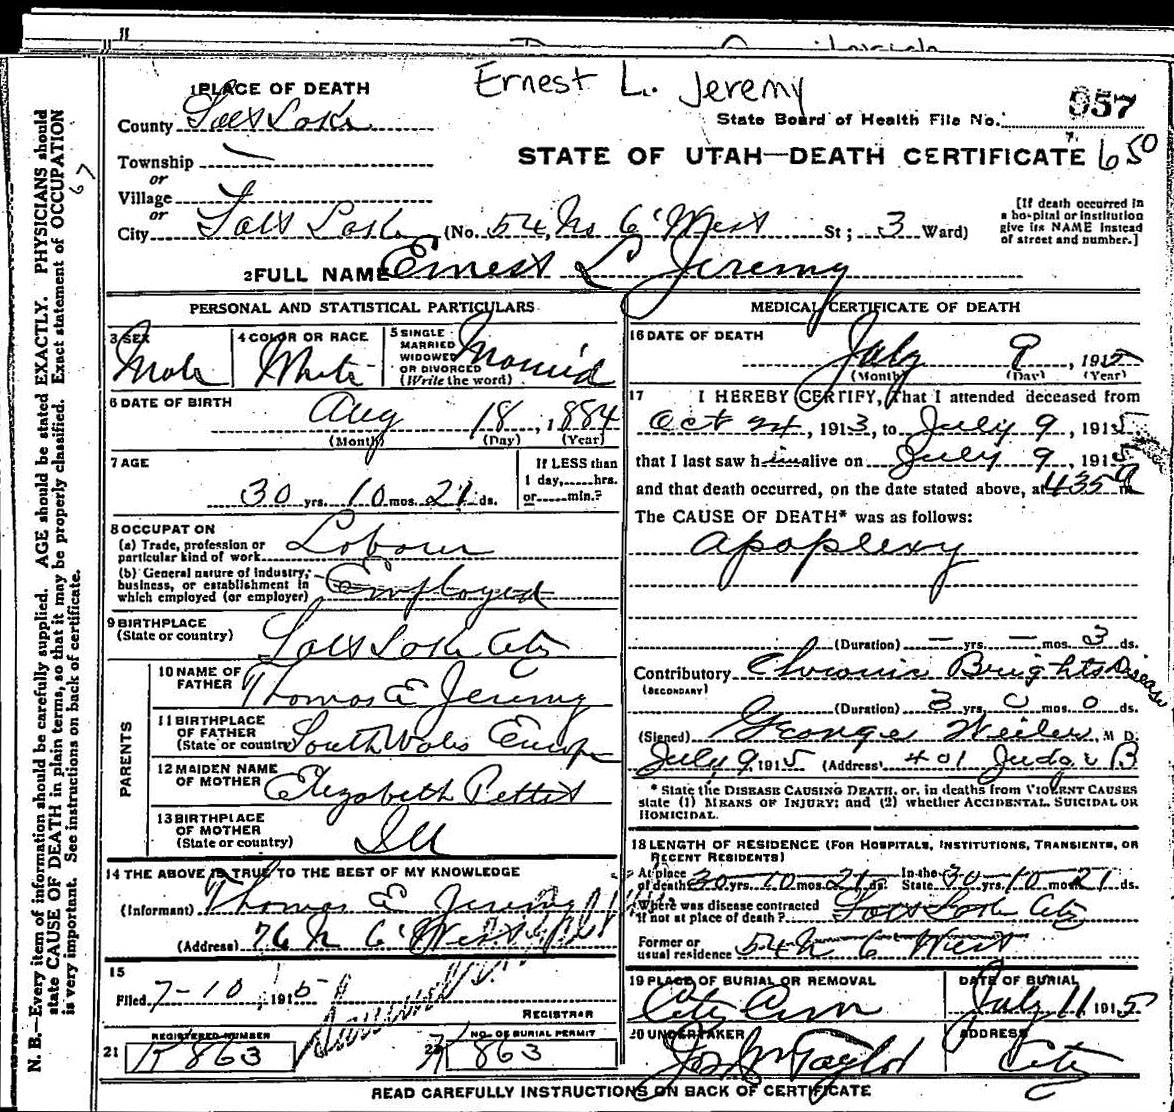 Ernest L. Jeremy
957
State Board of Health File No.
STATE OF UTAH—DEATH CERTIFICATE 650
1 PLACE OF DEATH
County Salt Lake
Township —
or
Village
or
City Salt Lake (No. 54 No 6' West St; 3 Ward)
[If death occurred in a hospital or institution give its NAME instead of street and number.]
2 FULL NAME Ernest L Jeremy
PERSONAL AND STATISTICAL PARTICULARS
3 SEX Male
4 COLOR OR RACE White
5 SINGLE MARRIED WIDOWED OR DIVORCED (Write the word) Married
6 DATE OF BIRTH
Aug 18, 1884
(Month) (Day) (Year)
7 AGE
30 yrs. 10 mos. 21 ds.
If LESS than 1 day,......hrs. or......min.?
8 OCCUPATION
(a) Trade, profession or particular kind of work Labour
(b) General nature of industry, business, or establishment in which employed (or employer) Employed
9 BIRTHPLACE (State or country) Salt Lake City
PARENTS
10 NAME OF FATHER Thomas E Jeremy
11 BIRTHPLACE OF FATHER (State or country) South Wales Europe
12 MAIDEN NAME OF MOTHER Elizabeth Pettit
13 BIRTHPLACE OF MOTHER (State or country) Ill
14 THE ABOVE IS TRUE TO THE BEST OF MY KNOWLEDGE
(Informant) Thomas E Jeremy
(Address) 76 N 6' West
15
Filed 7-10, 1915
REGISTRAR
REGISTERED NUMBER
21 K 863
NO. OF BURIAL PERMIT
22 K 863
MEDICAL CERTIFICATE OF DEATH
16 DATE OF DEATH
July 9, 1915
(Month) (Day) (Year)
17 I HEREBY CERTIFY, That I attended deceased from
Oct 24, 1913, to July 9, 1915
that I last saw him alive on July 9, 1915
and that death occurred, on the date stated above, at 435 a m.
The CAUSE OF DEATH* was as follows:
Apoplexy
(Duration) — yrs. — mos. 3 ds.
Contributory (SECONDARY) Chronic Brights Disease
(Duration) 3 yrs. 0 mos. 0 ds.
(Signed) George Weiler, M D.
July 9, 1915 (Address) 401 Judge B
* State the DISEASE CAUSING DEATH, or, in deaths from VIOLENT CAUSES
state (1) MEANS OF INJURY; and (2) whether ACCIDENTAL, SUICIDAL OR
HOMICIDAL.
18 LENGTH OF RESIDENCE (FOR HOSPITALS, INSTITUTIONS, TRANSIENTS, OR
RECENT RESIDENTS)
At place of death 30 yrs. 10 mos. 21 ds. In the State 30 yrs. 10 mos. 21 ds.
Where was disease contracted if not at place of death? Salt Lake City
Former or usual residence 54 N 6 West
19 PLACE OF BURIAL OR REMOVAL City Cem
DATE OF BURIAL July 11 1915
20 UNDERTAKER Jos Wm Taylor
ADDRESS City
READ CAREFULLY INSTRUCTIONS ON BACK OF CERTIFICATE
N. B.—Every item of information should be carefully supplied. AGE should be stated EXACTLY. PHYSICIANS should
state CAUSE OF DEATH in plain terms, so that it may be properly classified. Exact statement of OCCUPATION
is very important. See instructions on back of certificate.
67